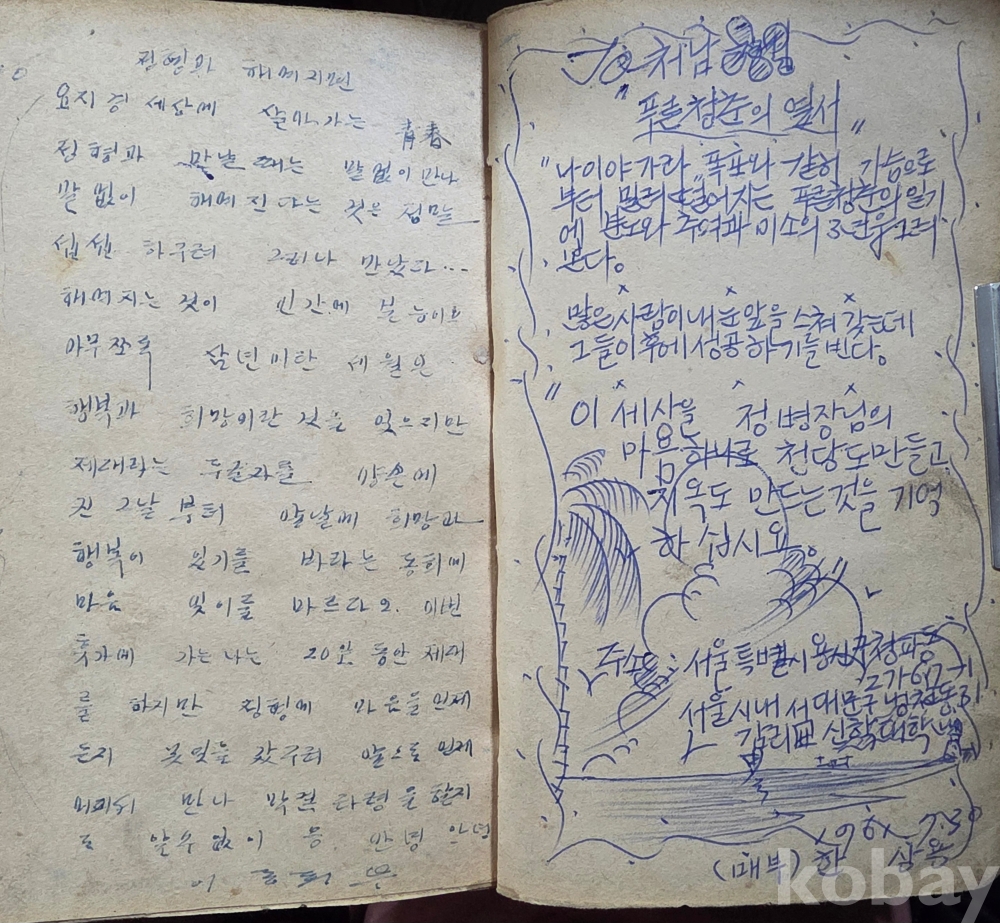 정형과 헤메지면
요지경 세상에 살아가는 靑春
정형과 만날 때는 말없이 만나
말없이 해메진다는 것은 정말
섭섭 하구려 그러나 만났다...
해메지는 것이 인간에 본능이요
아무쪼록 삼년이란 세월은
행복과 희망이란 것을 잊으지만
제대라는 두글자를 양손에
진 그날부터 앞날에 희망과
행복이 있기를 바라는 동히에
마음 잊이를 마르라오. 이번
휴가에 가는 나는 20일 동안 제대
를 하지만 정형에 마음을 언제
든지 못잊을 갔구려 앞으로 언제
만나 막걸 타령을 할지
도 알수없이 응. 안녕 안녕
처남
"푸른청춘의 열서"
"나이야가라" 폭포와 같히 가슴으로
부터 밀려 떨어지는 푸른청춘의 일기
에 분노와 추억과 미소의 3단을 그려
본다。
많은 사람이 내 눈앞을 스쳐 갔는데
그들이 후에 성공하기를 빈다。
"이 세상을 정병장님의
마음 하나로 천당도 만들고
지옥도 만드는 것을 기억
하십시요"
주소 : 서울특별시 용산구 청파동
2가
서울시내 서대문구 냉천동 31
감리교 신학대학 내
7.30
(매부) 한 상용
kobay